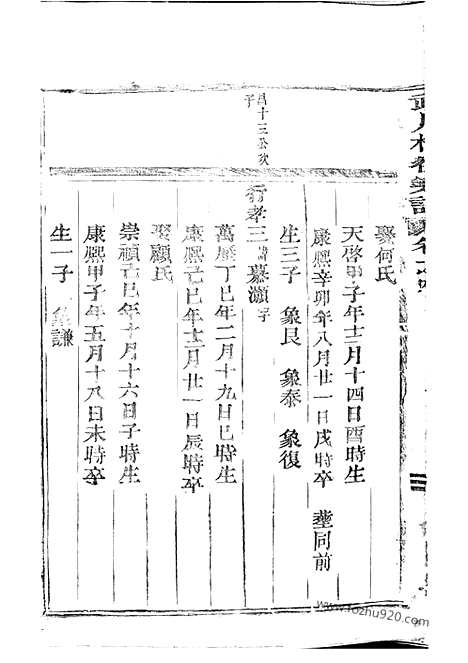 娶何氏
天啓甲子年十二月十四日酉時生
康熙辛卯年八月廿一日戌時卒 塟同前
生三子 象艮 象泰 象復
昌十三公次子
行孝三 諱慕灝 字
萬曆丁巳年二月十九日巳時生
康熙己巳年十二月廿一日辰時卒
娶顧氏
崇禎己巳年十月十六日子時生
康熙甲子年五月十八日未時卒
生一子 象謙
www.fozhu920.com